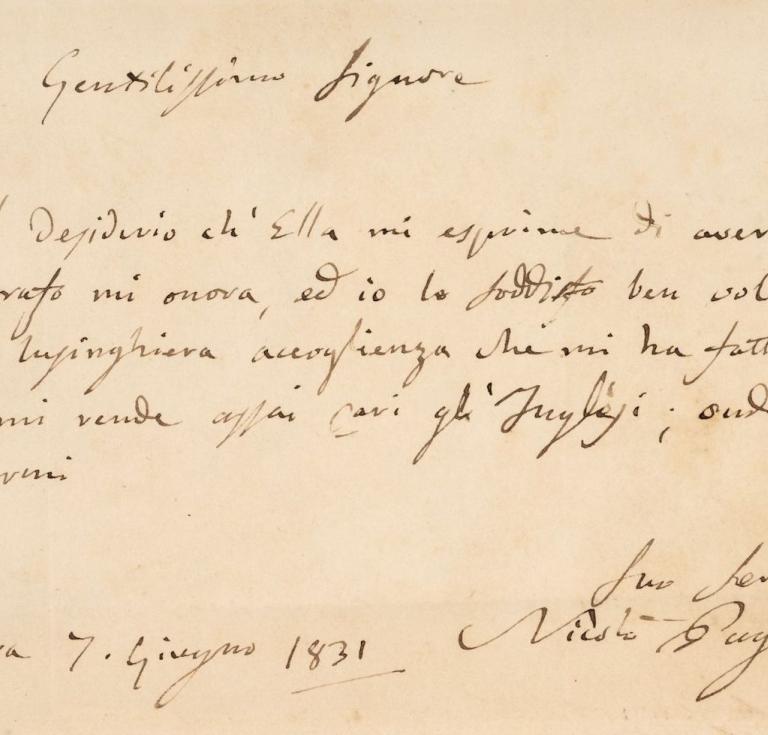 Gentilissimo Signore
Desiderio ch' Ella mi esprime di aver
rafo mi onora, ed io lo soddisfo ben vol
lusinghiera accoglienza che mi ha fatt
mi rende assai cari gl' Inglesi; ond
Suo Ser
Nicolò Pag
a 7. Giugno 1831